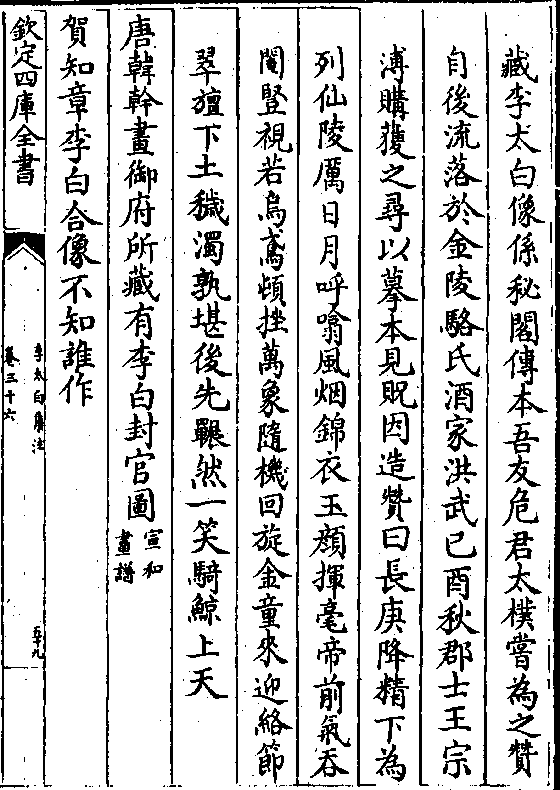 藏李太白像係秘閣傳本吾友危君太樸嘗為之贊
自後流落於金陵駱氏酒家洪武己酉秋郡士王宗
溥購獲之尋以摹本見貺因造贊曰長庚降精下為
列仙陵厲日月呼噏風烟錦衣玉顔揮毫帝前氣吞
閹豎視若烏鳶頓挫萬象隨機回旋金童來迎絡節
翠旜下土穢濁孰堪後先囅然一笑騎鯨上天
唐韓幹畫御府所藏有李白封官圖宣和畫譜
賀知章李白合像不知誰作
欽定四庫全書
李太白集注
卷三十六
五十九